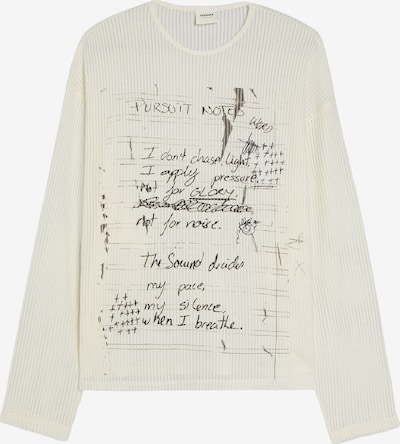 PURSUIT NOTES
I don't chase light.
I apply pressure.
Not for GLORY.
Not for noise.
The Sound divides
my pace,
my silence,
when I breathe.